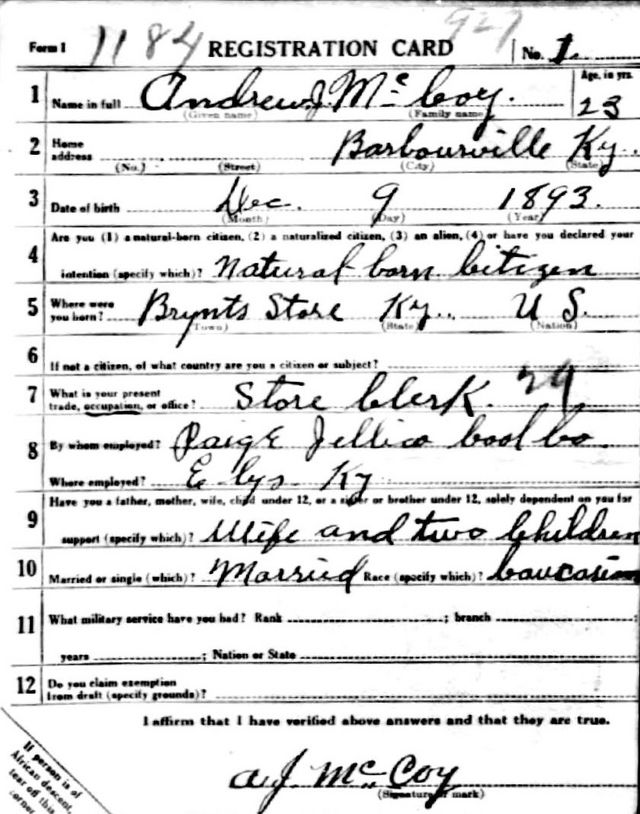 Form 1 1184 REGISTRATION CARD 927 No. 1
1 Name in full Andrew J. McCoy. Age, in yrs.
(Given name) (Family name) 23
2 Home address Barbourville Ky.
(No.) (Street) (City) (State)
3 Date of birth Dec. 9 1893.
(Month) (Day) (Year)
Are you (1) a natural-born citizen, (2) a naturalized citizen, (3) an alien, (4) or have you declared your
4 intention (specify which)? Natural born Citizen
5 Where were you born? Brynts Store Ky. U S.
(Town) (State) (Nation)
6 If not a citizen, of what country are you a citizen or subject?
7 What is your present trade, occupation, or office? Store Clerk. 29
8 By whom employed? Paige Jellico Cool Co
Where employed? Elys Ky
Have you a father, mother, wife, child under 12, or a sister or brother under 12, solely dependent on you for
9 support (specify which)? Wife and two Children
10 Married or single (which)? Married Race (specify which)? Caucasian
11 What military service have you had? Rank ; branch ;
years ; Nation or State
12 Do you claim exemption from draft (specify grounds)?
I affirm that I have verified above answers and that they are true.
A J McCoy
(Signature or mark)
If person is of
African descent,
tear off this
corner